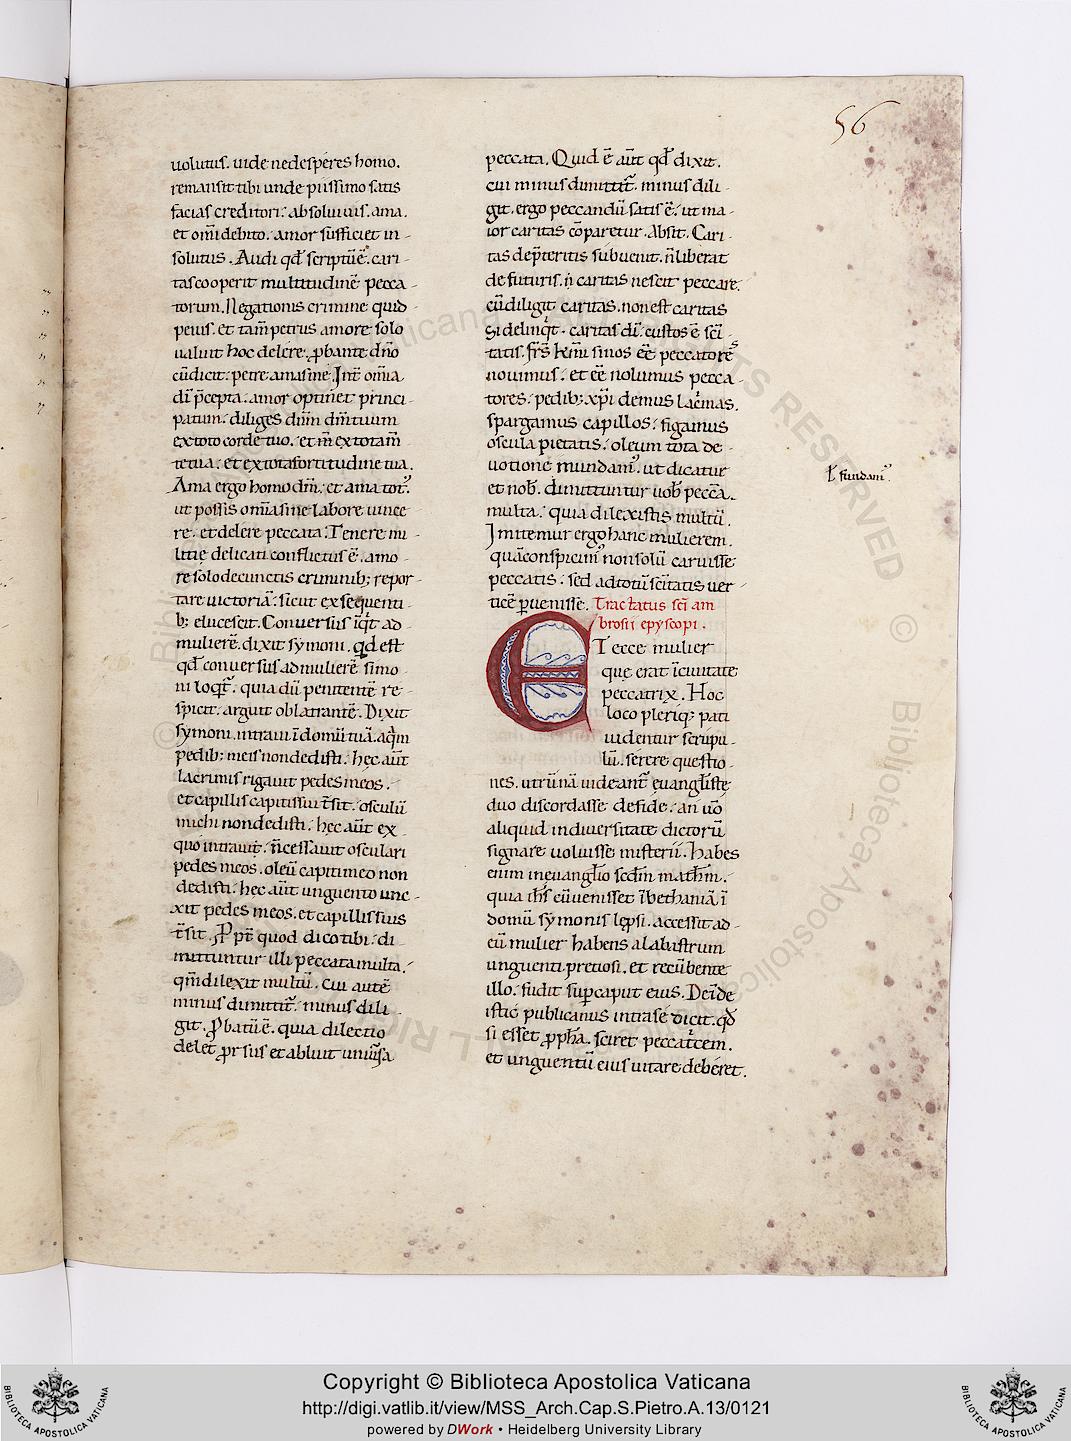 56
uolutus. uide ne desperes homo.
remansit tibi unde piissimo satis
facias creditori: absolui uis. ama.
et om̄i debito: amor sufficiet in-
solutus. Audi qđ scriptū ē. cari-
tas cooperit multitudinē pecca-
torum. Negationis crimine quid
peius. et tam̄ petrus amore solo
ualuit hoc delere. ꝓbante dn̄o
cū dicit: petre amas me. Int̄ om̄ia
dī p̄cepta: amor optinet princi-
patum: diliges dnm̄ dm̄ tuum
ex toto corde tuo: et in̄ ex tota m̄
te tua: et ex tota fortitudine tua.
Ama ergo homo dm̄: et ama tot᷒.
ut possis om̄ia sine labore uince
re: et delere peccata: Tenere mi
litię delicati conflictus ē: amo-
re solo de cunctis criminib; repor-
tare uictoriā: sicut ex sequenti-
b; elucescit. Conuersus iq̇t ad
mulierē. dixit symoni. qđ est
qđ conuersus ad mulierē simo
ni loq̇t᷒. quia dū penitentē re-
spicit. arguit oblatrantē. Dixit
symoni. intraui ī domū tuā. aq̄m
pedib; meis non dedisti: hec aūt
lacrimis rigauit pedes meos:
et capillis capitis sui t̄sit: osculū
michi non dedisti: hęc aūt ex
quo intrauit: n̄ cessauit osculari
pedes meos. oleū capiti meo non
dedisti: hęc aūt unguento unc-
xit pedes meos. et capillis suis
t̄sit. Ꝓpt̄ quod dico tibi: di
mittuntur illi peccata multa:
qm̄ dilexit multū. cui autē
minus dimittit᷒: minus dili-
git. Ꝓbatū ē. quia dilectio
delet ꝓrsus et abluit uniūsa
peccata. Quid ē aūt qđ dixit.
cui minus dimittit᷒. minus dili-
git. ergo peccandū satis ē: ut ma-
ior caritas cōparetur. Absit. Cari-
tas de p̄teritis subuenit. n̄ liberat
de futuris. n̄ caritas nescit peccare.
cū diligit caritas. non est caritas
si delinq̇t. caritas dī: custos ē sci͞-
tatis. fr̄s km̄i si nos eē peccatorēs
nouimus: et eē nolumus pecca-
tores: pedib; xp̄i demus lac̓mas.
spargamus capillos: figamus
oscula pietatis: oleum tota de
uotione mundam᷒. ut dicatur
et nob̄. dimittuntur uob̄ pecc̄a.
multa: quia dilexistis multū.
Imitemur ergo hanc mulierem.
quā conspicim᷒ non solū caruisse
peccatis: sed ad totū sc̄itatis uer-
ticē ꝑuenisse. Tractatus sc̄i am
brosii epyscopi.
ł fundam᷒.
ET ecce mulier
quę erat ī ciuitate
peccatrix. Hoc
loco pleriq; pati
uidentur scrupu-
lū. serere questio-
nes. utrū nā uideant᷒ euangl̄istę
duo discordasse de fide: an uō
aliquid in diuersitate dictorū
signare uoluisse misterii. Habes
enim in euanglīo scdm̄ math̄m.
quia ih̄s cū uenisset ī bethaniā. ī
domū symonis lępsi. accessit ad
eū mulier habens alabastrum
unguenti pretiosi. et recūbente
illo: fudit suꝑ caput eius. Deīde
istic publicanus intra se dicit. qđ
si esset ꝓph̄a. sciret peccat̓cem.
et unguentū eius uitare deberet.
Copyright © Biblioteca Apostolica Vaticana
http://digi.vatlib.it/view/MSS_Arch.Cap.S.Pietro.A.13/0121
powered by DWork • Heidelberg University Library
BIBLIOTECA APOSTOLICA VATICANA
BIBLIOTECA APOSTOLICA VATICANA